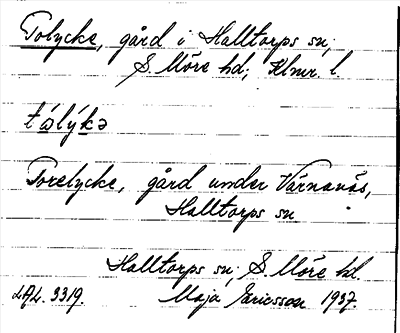 Tolycke, gård i Halltorps sn,
S. Möre hd; Klmr. l.
tålýkə
Torelycke, gård under Värnanäs,
Halltorps sn
Halltorps sn; S. Möre hd.
LAL. 3319. Maja Ericsson 1937.